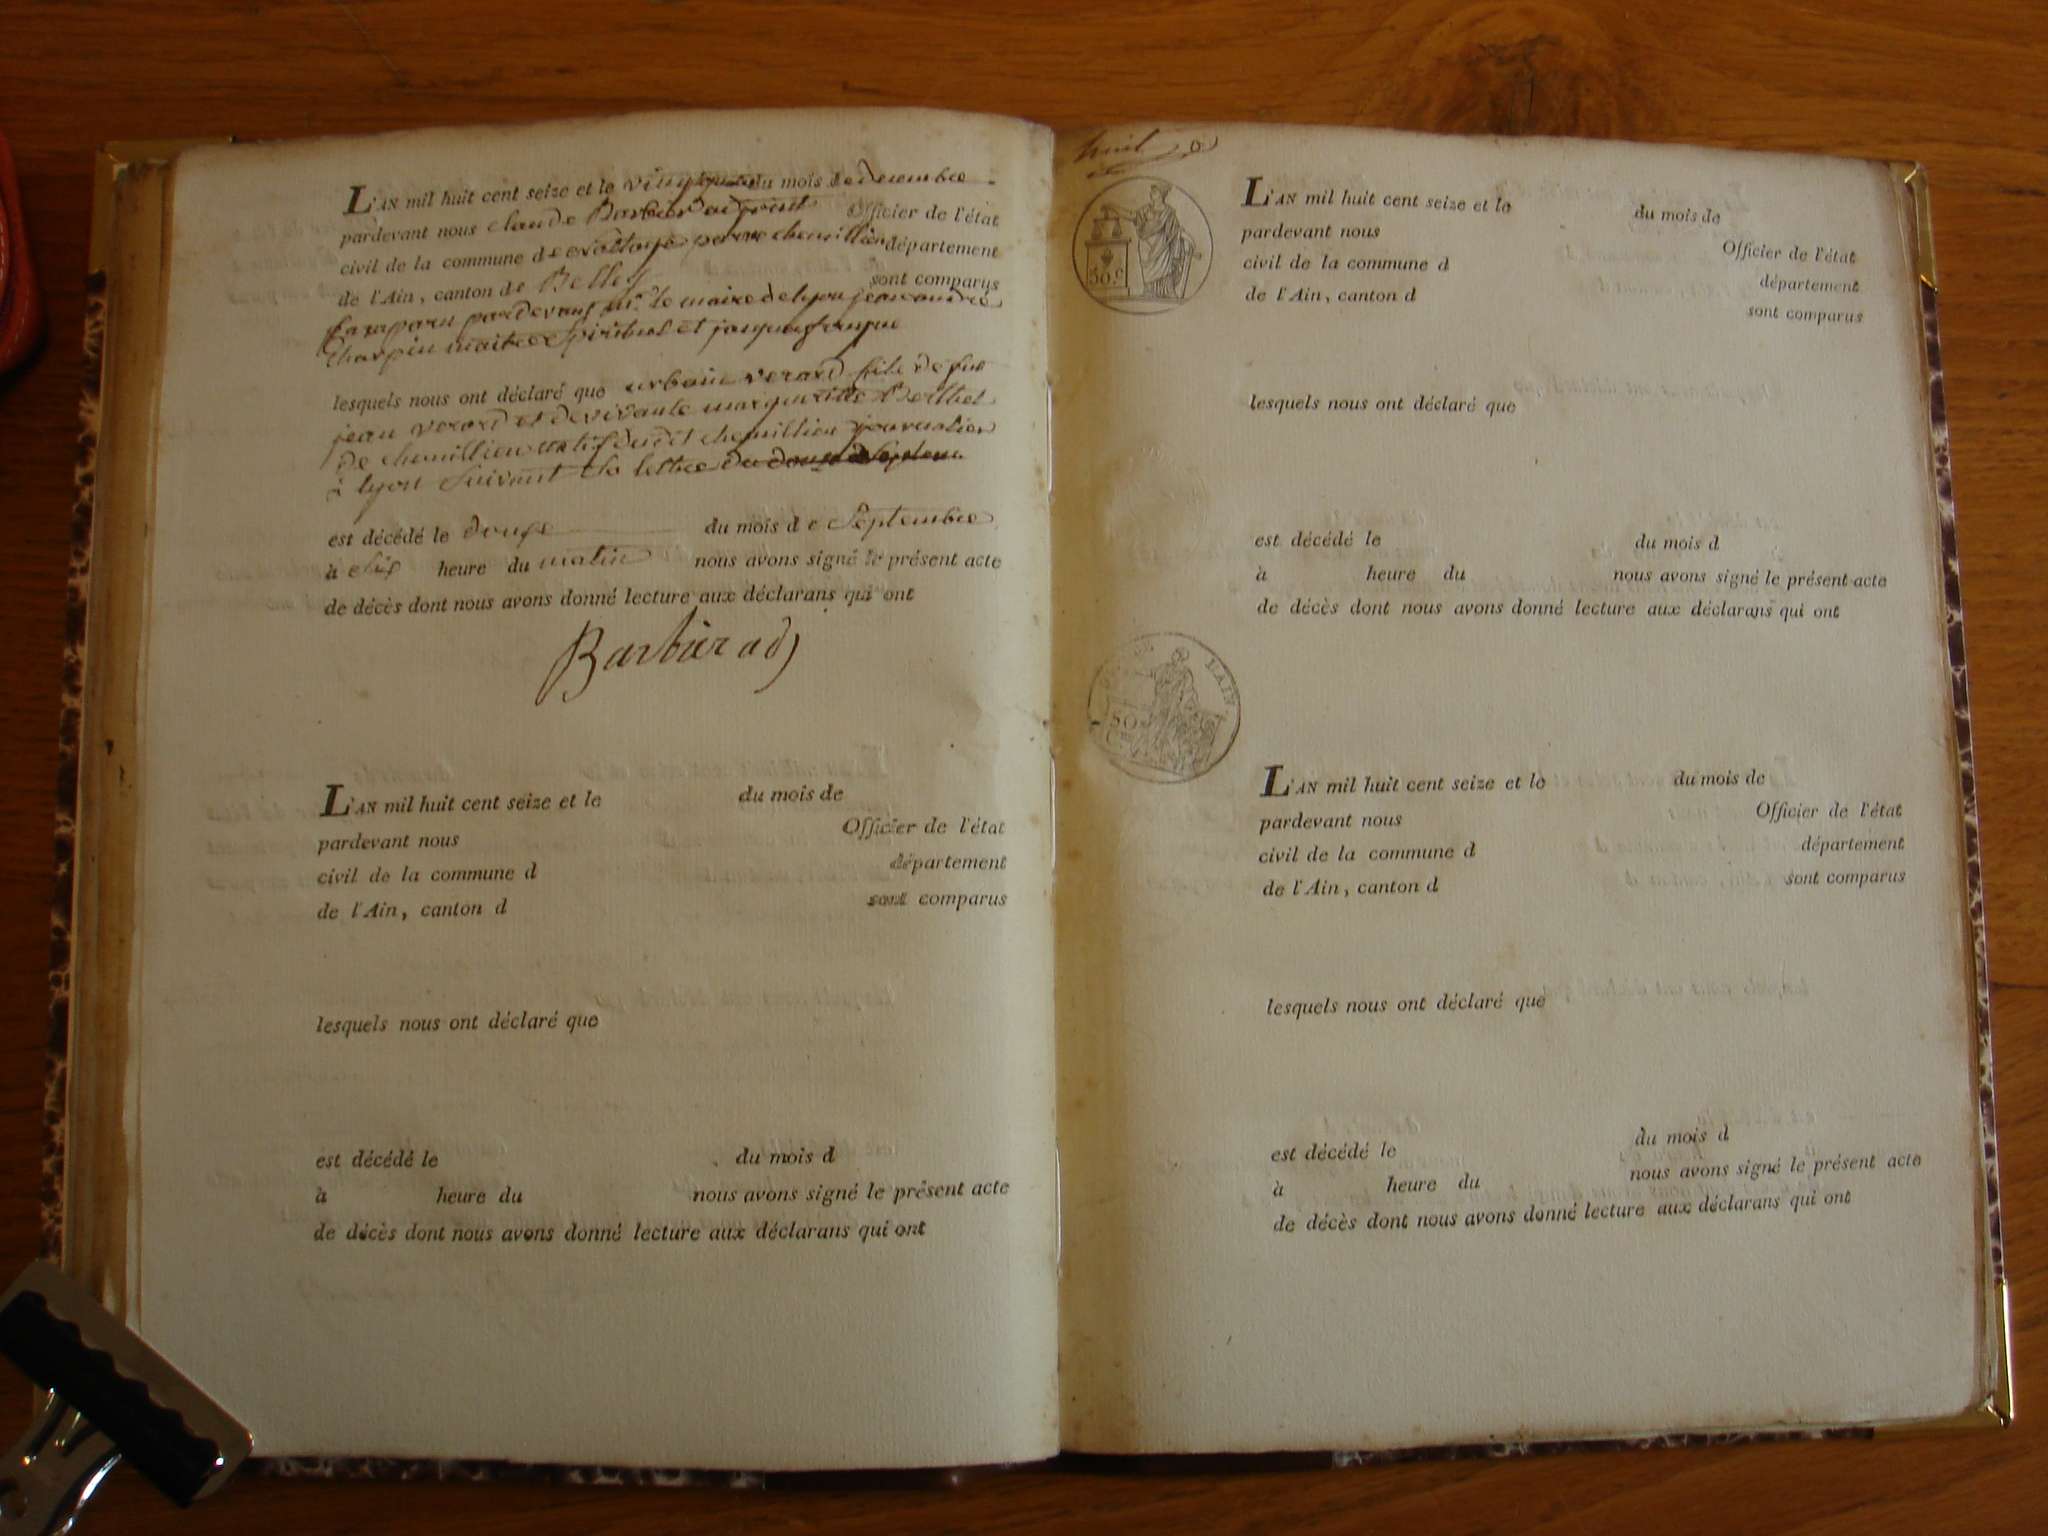 L'AN mil huit cent seize et le du mois de decembre
pardevant nous claude Barbier adjoint Officier de l'état
civil de la commune de parve chemillieu département
de l'Ain, canton de Belley sont comparus
Comparu pardevant mr. le maire de lyon jean andré
Charpin maitre et
lesquels nous ont déclaré que urbain verard fils de feu
jean verard et de vivante margueritte Berthet
de chemillieu natif dudit chemillieu journalier
à lyon suivant la lettre du douze Septem
est décédé le douze du mois de Septembre
à six heure du matin nous avons signé le présent acte
de décès dont nous avons donné lecture aux déclarans qui ont
Barbier adj
L'AN mil huit cent seize et le du mois de
pardevant nous Officier de l'état
civil de la commune d département
de l'Ain, canton d sont comparus
lesquels nous ont déclaré que
est décédé le du mois d
à heure du nous avons signé le présent acte
de décès dont nous avons donné lecture aux déclarans qui ont
huit
50 c.
L'AN mil huit cent seize et le du mois de
pardevant nous Officier de l'état
civil de la commune d département
de l'Ain, canton d sont comparus
lesquels nous ont déclaré que
est décédé le du mois d
à heure du nous avons signé le présent acte
de décès dont nous avons donné lecture aux déclarans qui ont
L'AIN.
50
L'AN mil huit cent seize et le du mois de
pardevant nous Officier de l'état
civil de la commune d département
de l'Ain, canton d sont comparus
lesquels nous ont déclaré que
est décédé le du mois d
à heure du nous avons signé le présent acte
de décès dont nous avons donné lecture aux déclarans qui ont